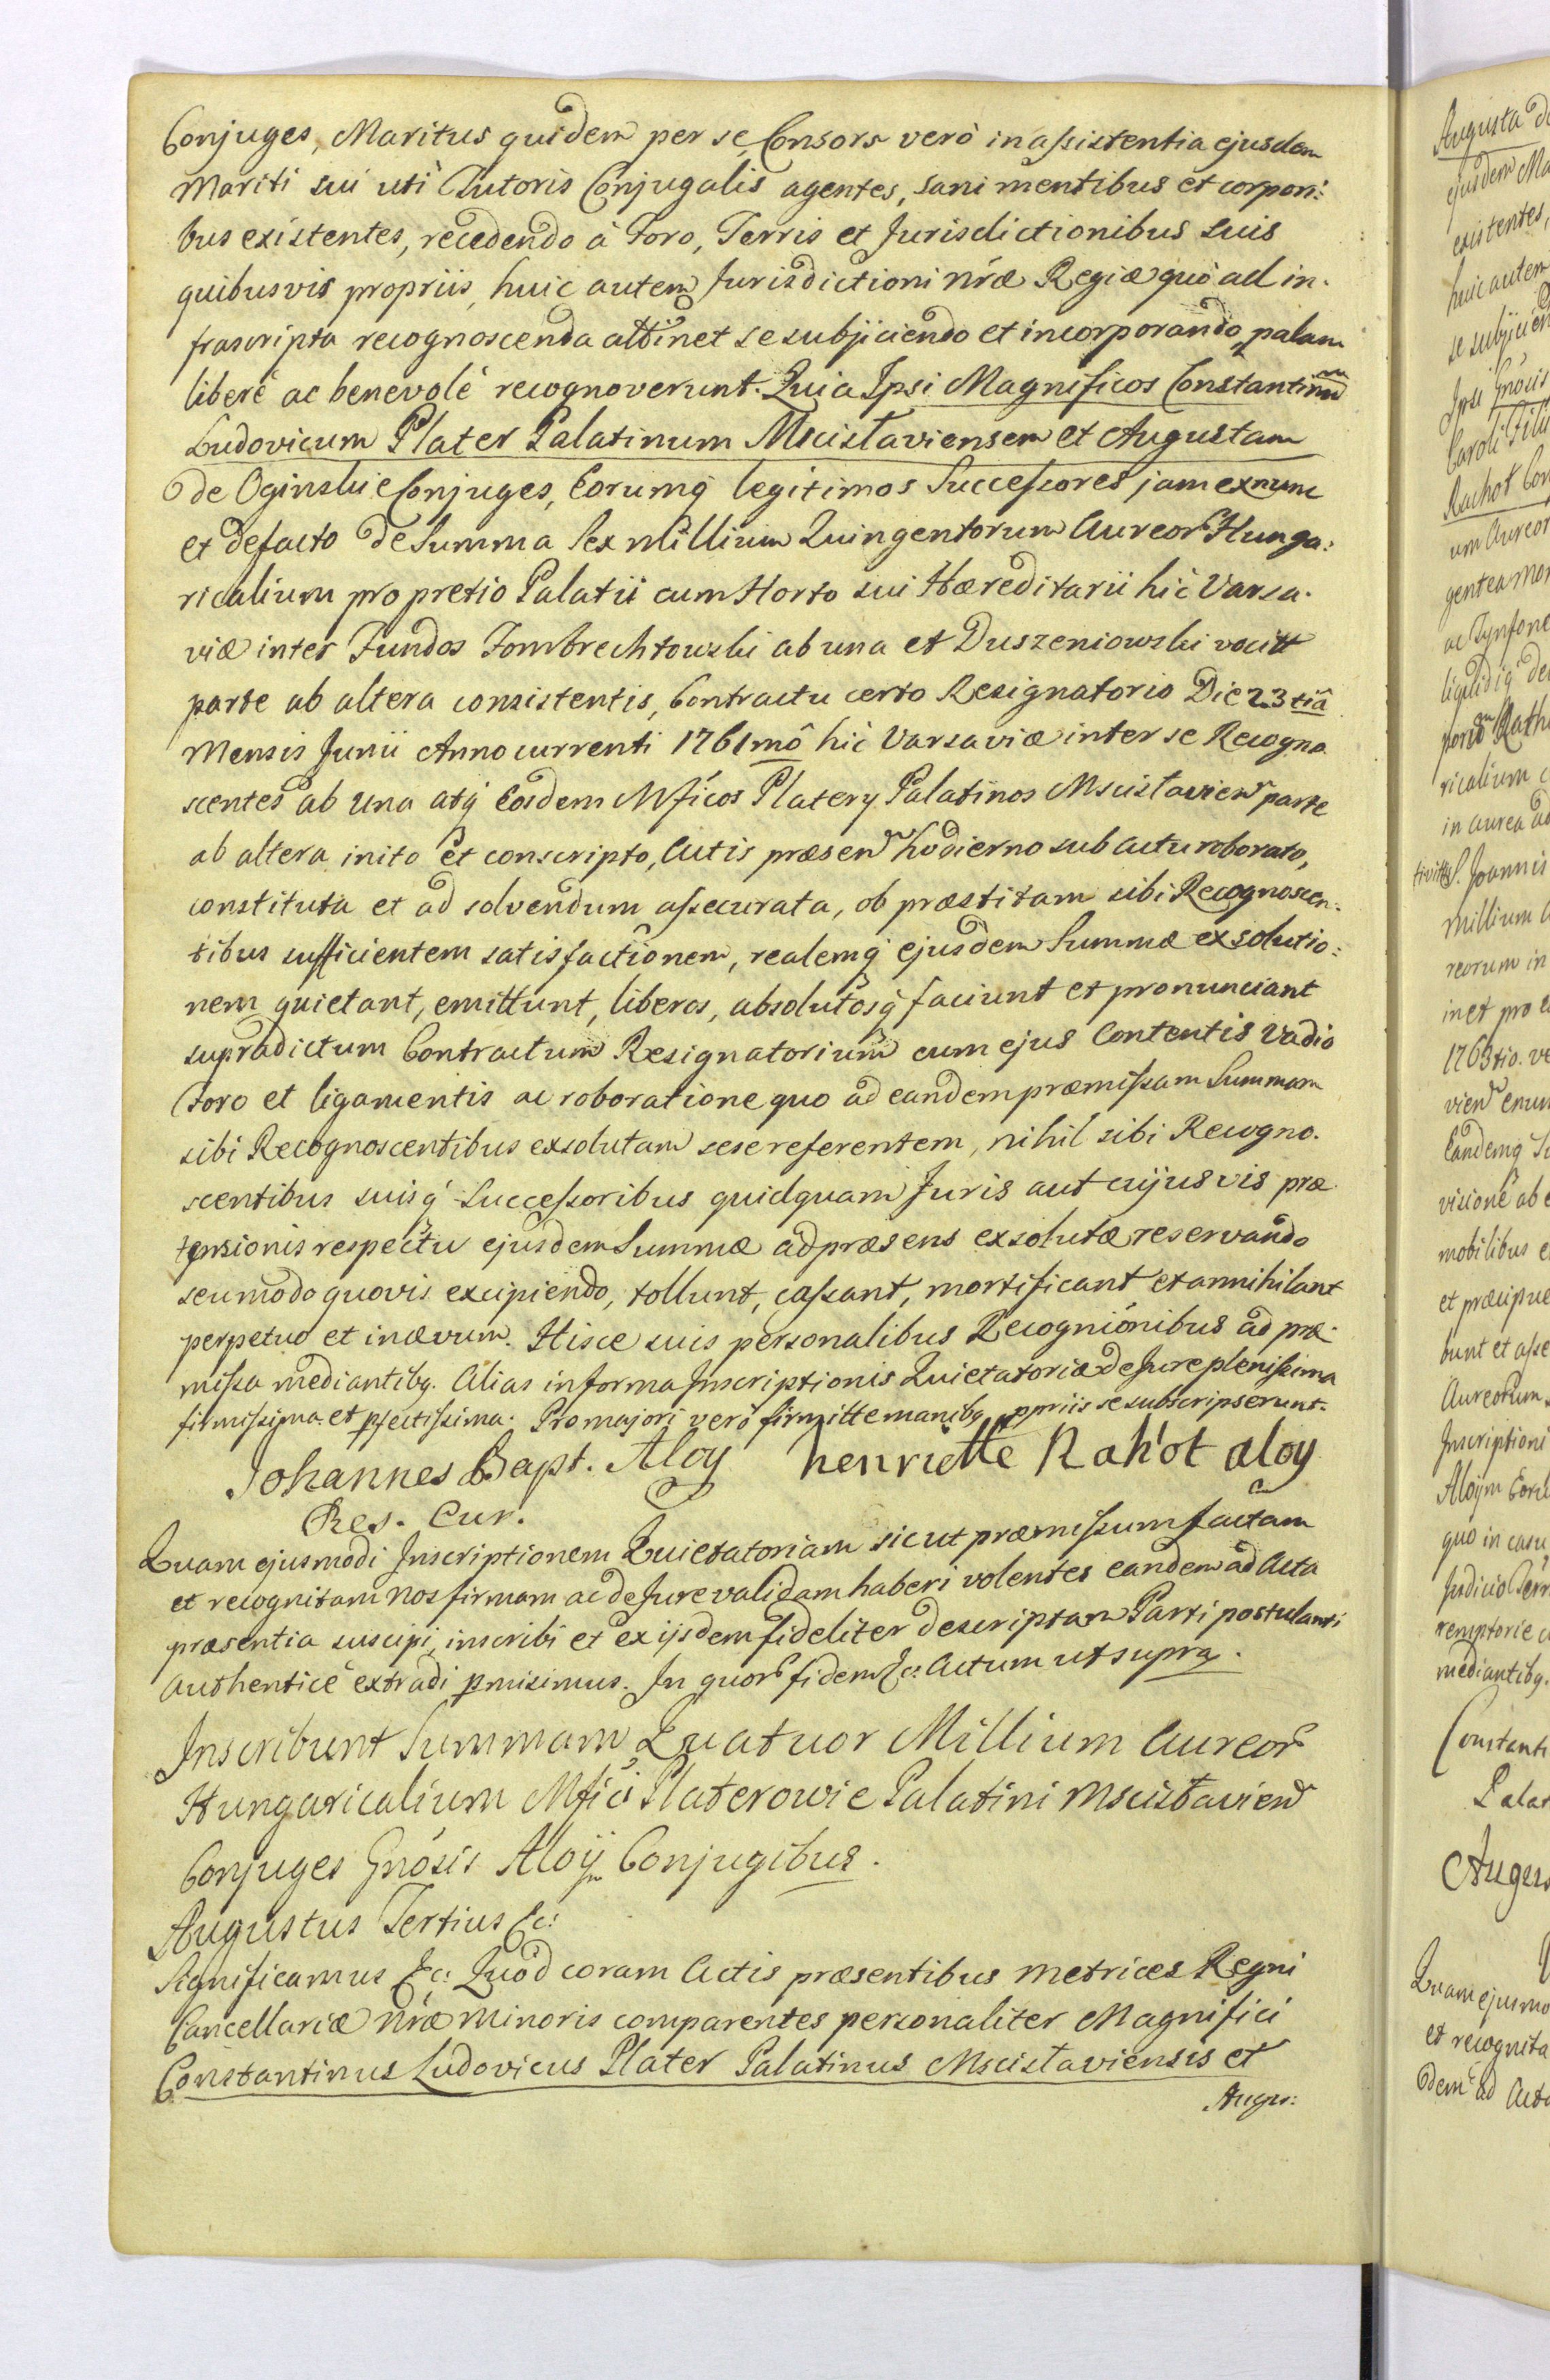 Conjuges, Maritus quidem per se, Consors verò in assistentia ejusdem
Mariti sui uti Tutoris Conjugalis agentes, sani mentibus et corpori:
bus existentes, recedendo à Foro, Terris et Jurisdictionibus suis
quibusvis propriis, huic autem Jurisdictioni nrae Regiae quò ad in-
frascripta recognoscenda attinet se subjiciendo et incorporando, palam
liberè ac benevolè recognoverunt. Quia Ipsi Magnificos Constantinum
Ludovicum Plater Palatinum Mscislaviensem et Augustam
de Oginskie Conjuges, Eorumq legitimos Successores jam exnunc
et defacto de Summa Sex Millium Quingentorum Aureor Hunga:
ricalium pro pretio Palatii cum Horto sui Haereditarii hic Varsa-
viae inter Fundos Fombrechtowski ab una et Duszeniowski vocitt
parte ab altera consistentis, Contractu certo Resignatorio Die 23 tiâ
Mensis Junii Anno currenti 1761mô hic Varsaviae inter se Recogno
scentes ab una atq Eosdem Mficos Platery Palatinos Mscislavien parte
ab altera inito et conscripto, Actis praesen hodierno sub actu roborato,
constituta et ad solvendum assecurata, ob praestitam sibi Recognoscen:
tibus sufficientem satisfactionem, realemq ejusdem Summae exsolutio:
nem quietant, emittunt, liberos, absolutosq faciunt et pronunciant
supradictum Contractum Resignatorium cum ejus Contentis Vadio
Foro et ligamentis ac roboratione quo ad eandem praemissam Summam
sibi Recognoscentibus exsolutam sese referentem, nihil sibi Recogno-
scentibus suisq Successoribus quidquam Juris aut cujusvis prae
tensionis respectu ejusdem Summae ad praesens exsolutae reservando
seu modo quovis excipiendo, tollunt, cassant, mortificant et annihilant
perpetuo et in aevum. Hisce suis personalibus Recognionibus ad prae-
missa mediantibq. Alias in forma Inscriptionis Quietatoriae de Jure plenissima
firmissima et pfectissima. Pro majori verò firmitte manibq ppriis se subscripserunt.
Johannes Bapt. Aloy henriette Rahot aloy
Res. Cur.
Quam ejusmodi Inscriptionem Quietatoriam sicut praemissum factam
et recognitam nos firmam ac de Jure validam haberi volentes eandem ad Acta
praesentia suscipi, inscribi et ex iisdem fideliter descriptam Parti postulanti
authenticè extradi pmisimus. In quor fidem &c: Actum ut supra.
Inscribunt Summam Quatuor Millium Aureor
Hungaricalium Mfici Platerowie Palatini Mscislavien
Conjuges Gnosis Aloy Conjugibus.
Augustus Tertius &c:
Significamus &c: Quòd coram Actis praesentibus Metrices Regni
Cancellariae nrae Minoris comparentes personaliter Magnifici
Constantinus Ludovicus Plater Palatinus Mscislaviensis et
Augus:
Augusta de
ejusdem Ma
existentes,
huic autem
se subjicien
Ipsi Gnosis
Caroli Filii
Rachot Con
um Aureor
gentea mon
ac Tynfone
ricalium
in aurea ad
S. Joannis
Millium A
reorum in
inet pro
1763tio. ve
vien enun
Eandemq Su
visione ab
mobilibus e
et praecipue
bunt et asse
Aureorum
Inscriptioni
quo in casu
Judicio Terr
remptorie
mediantibq.
Constanti
Palat
Augus
Quam ejusmo
et recognita
dem ad Acta